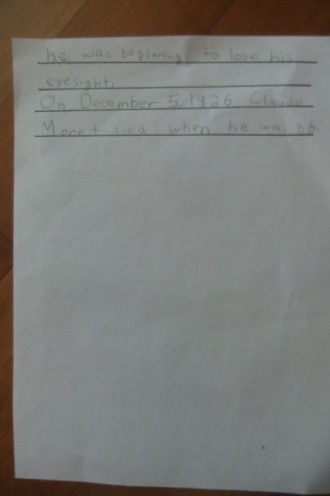 he was beginning to lose his
eyesight.
On December 5, 1926 Claude
Monet died when he was 86.